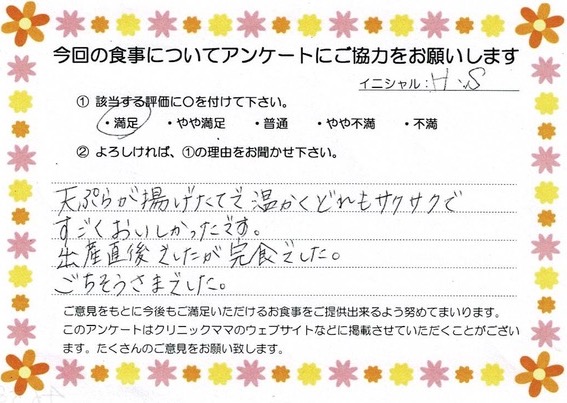 今回の食事についてアンケートにご協力をお願いします
イニシャル：H.S
① 該当する評価に〇を付けて下さい。
・満足 ・やや満足 ・普通 ・やや不満 ・不満
② よろしければ、①の理由をお聞かせ下さい。
天ぷらが揚げたてで温かくどれもサクサクで
すごくおいしかったです。
出産直後でしたが完食でした。
ごちそうさまでした。
ご意見をもとに今後もご満足いただけるお食事をご提供出来るよう努めてまいります。
このアンケートはクリニックママのウェブサイトなどに掲載させていただくことがござい
ます。たくさんのご意見をお願い致します。